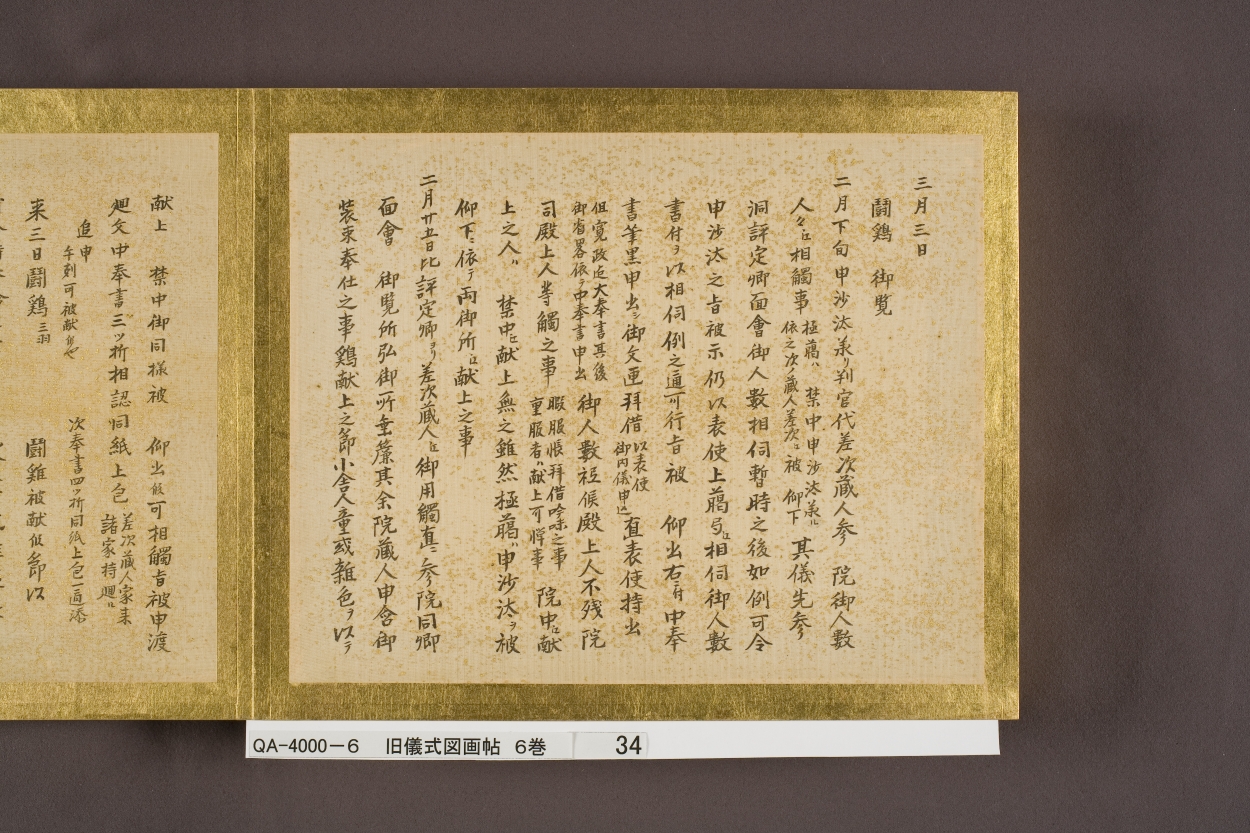 三月三日
鬪鷄　御覧
二月下旬申沙汰承リ判官代差次蔵人参　院御人数
人々江相觸事
極﨟ハ　禁中申沙汰義ニ
依之次ノ蔵人差次ニ被　仰下
其儀先参
洞評定卿面會御人数相伺暫時之後如例可令
申沙汰之旨被示仍以表使上﨟局江相伺御人数
書付ヲ以相伺例之通可行旨被　仰出右ニ付中奉
書筆墨申出シ御文匣拝借
以表使
御内儀申込
直表使持出
但寛政迄大奉書其後
御省畧依テ中奉書申出
御人数祗候殿上人不残院
司殿上人等觸之事
暇服帳拝借吟味之事
重服者ハ献上可憚事
院中江献
上之人ハ　禁中江献上無之雖然極﨟ハ申沙汰ヲ被
仰下ニ依テ両御所江献上之事
二月廿五日比評定卿ヨリ差次蔵人江御用觸直ニ参院同卿
面會　御覧所弘御所垂簾其余院蔵人申含御
装束奉仕之事鷄献上之節小舎人童或雑色ヲ以テ
献上　禁中御同様被　仰出候可相觸旨被申渡
廻文中奉書三ツ折相認同紙上包
差次蔵人家来
諸家持廻ニ
追申
午刻可被献候也
次奉書四ツ折同紙上包一通添
来三日鬪鷄
三羽
鬪雞被献候節以
QA-4000-6　旧儀式図画帖　6巻　34